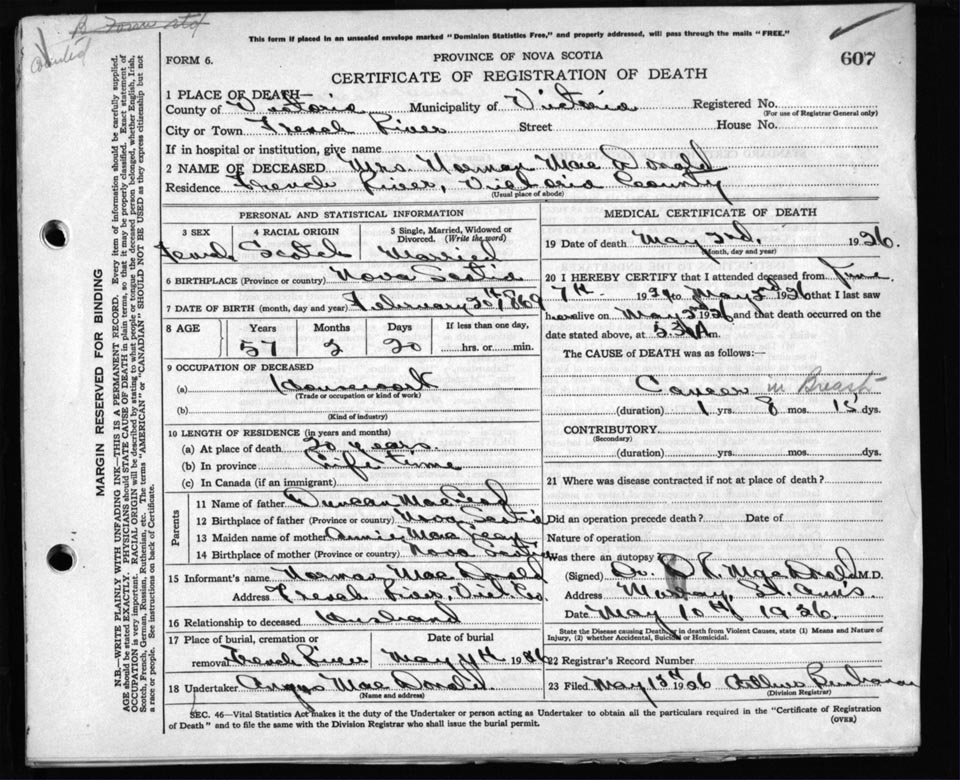 This form if placed in an unsealed envelope marked "Dominion Statistics Free," and properly addressed, will pass through the mails "FREE."
FORM 6.
PROVINCE OF NOVA SCOTIA
607
CERTIFICATE OF REGISTRATION OF DEATH
1 PLACE OF DEATH—
County of Victoria Municipality of Victoria Registered No.
(For use of Registrar General only)
City or Town French River Street House No.
If in hospital or institution, give name
2 NAME OF DECEASED Mrs. Norman Mac Donald
Residence French River, Victoria County
(Usual place of abode)
PERSONAL AND STATISTICAL INFORMATION
3 SEX 4 RACIAL ORIGIN 5 Single, Married, Widowed or Divorced. (Write the word)
Female Scotch Married
6 BIRTHPLACE (Province or country) Nova Scotia
7 DATE OF BIRTH (month, day and year) February
8 AGE Years Months Days If less than one day,
57 2 20 hrs. or min.
9 OCCUPATION OF DECEASED
(a) Housework
(Trade or occupation or kind of work)
(b)
(Kind of industry)
10 LENGTH OF RESIDENCE (in years and months)
(a) At place of death 20 years
(b) In province Life time
(c) In Canada (if an immigrant)
Parents
11 Name of father Duncan
12 Birthplace of father (Province or country) Nova Scotia
13 Maiden name of mother Annie
14 Birthplace of mother (Province or country) Nova Scotia
15 Informant's name Norman Mac Donald
Address French River, Vict Co.
16 Relationship to deceased Husband
17 Place of burial, cremation or removal Date of burial
French River May
18 Undertaker Angus Mac Donald.
(Name and address)
MEDICAL CERTIFICATE OF DEATH
19 Date of death May 2nd. 1926.
(Month, day and year)
20 I HEREBY CERTIFY that I attended deceased from June
7th. to May 2nd 1926 that I last saw
her alive on May 2nd 1926 and that death occurred on the
date stated above, at A m.
The CAUSE of DEATH was as follows:—
Cancer in Breast
(duration) 1 yrs. 8 mos. 15 dys.
CONTRIBUTORY
(Secondary)
(duration) yrs. mos. dys.
21 Where was disease contracted if not at place of death?
Did an operation precede death? Date of
Nature of operation
Was there an autopsy
(Signed) Dr. Mac Donald M.D.
Address Murray, St. Ann's
Date May 10th 1926
State the Disease causing Death, or in death from Violent Causes, state (1) Means and Nature of Injury, (2) whether Accidental, Suicidal or Homicidal.
22 Registrar's Record Number
23 Filed May 13th 1926 Buchanan
(Division Registrar)
SEC. 46—Vital Statistics Act makes it the duty of the Undertaker or person acting as Undertaker to obtain all the particulars required in the "Certificate of Registration
of Death" and to file the same with the Division Registrar who shall issue the burial permit. (OVER)
MARGIN RESERVED FOR BINDING
N.B.—WRITE PLAINLY WITH UNFADING INK—THIS IS A PERMANENT RECORD. Every item of information should be carefully supplied.
AGE should be stated EXACTLY. PHYSICIANS should STATE CAUSE OF DEATH in plain terms, so that it may be properly classified. Exact statement of
OCCUPATION is very important. RACIAL ORIGIN will be described by stating to what people or tongue the deceased person belonged, whether English, Irish,
Scotch, French, German, Russian, Ruthenian, etc. The terms "AMERICAN" or "CANADIAN" SHOULD NOT BE USED as they express citizenship but not
a race or people. See instructions on back of Certificate.